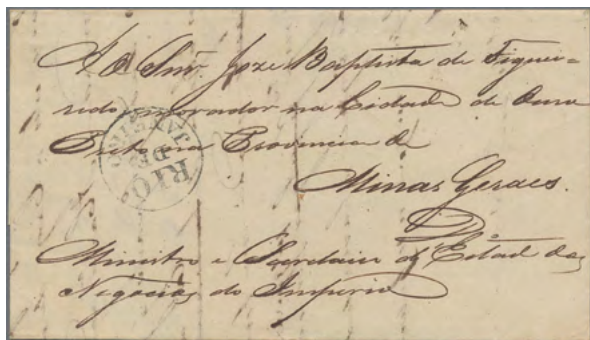 Ao Snr. Joze Baptista de Figuei=
redo, morador na Cidade de Ouro
Preto na Provincia de
Minas Geraes.
Do
Ministro e Secretario de Estado dos
Negocios do Imperio
RIO DE JANEIRO